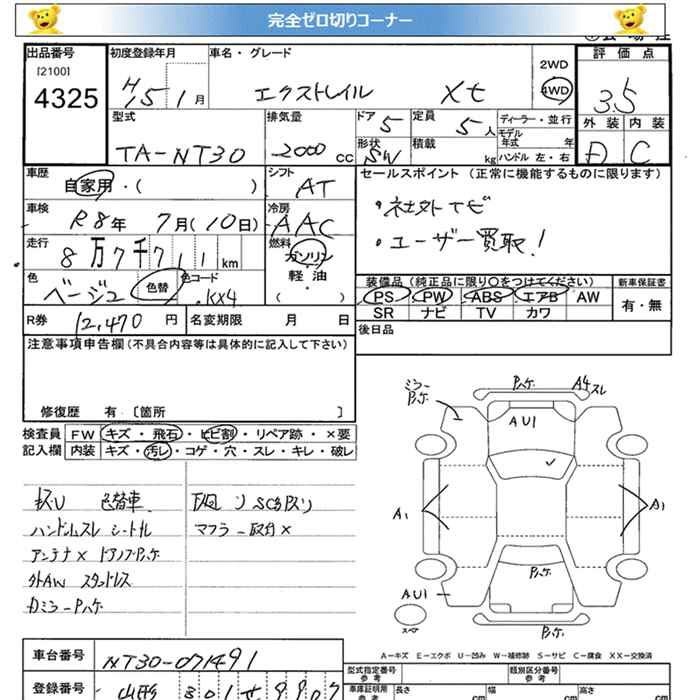 完全ゼロ切りコーナー
出品番号 初度登録年月 車名・グレード 評価点
[2100]
4325 H15 1月 エクストレイル Xt 2WD 4WD 3.5
型式 排気量 ドア 5 定員 5人 ディーラー・並行 外装 内装
TA-NT30 2000cc 形状 SW 積載 kg モデル年式 年 ハンドル 左・右 D C
車歴 自家用・( ) シフト AT セールスポイント (正常に機能するものに限ります)
車検 R8年 7月(10日) 冷房 AAC ・社外ナビ
走行 8万7千711km 燃料 ガソリン 軽油 ・ ( ) ・ユーザー買取!
色 ベージュ 色替 色コード KX4 装備品 (純正品に限り○をつけてください) 新車保証書
PS PW ABS エアB AW 有・無
R券 12,470円 名変期限 月 日 SR ナビ TV カワ
注意事項申告欄(不具合内容等は具体的に記入して下さい) 後日品
修復歴 有 [箇所 ]
検査員 FW キズ・飛石・ヒビ割・リペア跡・×要
記入欄 内装 キズ・汚レ・コゲ・穴・スレ・キレ・破レ
色替車
ハンドルスレ シートル
マフラー取付×
アンテナ×
外AW スタッドレス
ミラー
A4スレ
AU1
A1
A1
AU1
スペア
A=キズ E=エクボ U=凹み W=補修跡 S=サビ C=腐食 XX=交換済
車台番号 NT30-071491
型式指定番号 参考 類別区分番号 参考
登録番号 山形 301 せ 9907
車庫証明用 参考 長さ cm 幅 cm 高さ cm